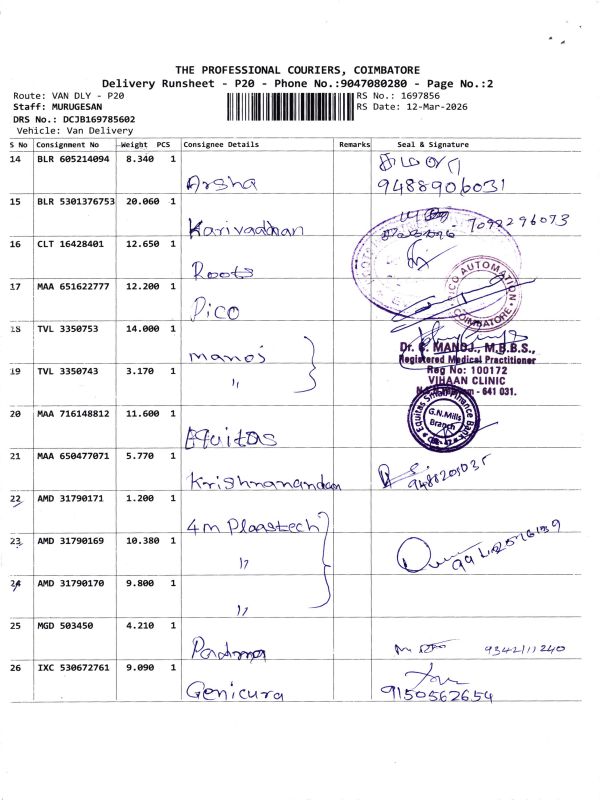 THE PROFESSIONAL COURIERS, COIMBATORE
Delivery Runsheet - P20 - Phone No.:9047080280 - Page No.:2
Route: VAN DLY - P20
RS No.: 1697856
Staff: MURUGESAN
RS Date: 12-Mar-2026
DRS No.: DCJB169785602
Vehicle: Van Delivery
S No Consignment No Weight PCS Consignee Details Remarks Seal & Signature
14 BLR 605214094 8.340 1 Arsha
9488906031
15 BLR 5301376753 20.060 1 Karivadhan
7092296073
16 CLT 16428401 12.650 1 Roots
17 MAA 651622777 12.200 1 Pico
PICO AUTOMATION
COIMBATORE
18 TVL 3350753 14.000 1 Manoj
Dr. MANOJ., M.B.B.S.,
Registered Medical Practitioner
19 TVL 3350743 3.170 1 "
Reg No: 100172
VIHAAN CLINIC
- 641 031.
20 MAA 716148812 11.600 1 Equitas
Equitas Small Finance Bank
G.N.Mills
Branch
21 MAA 650477071 5.770 1 Krishnanandan
9488201035
22 AMD 31790171 1.200 1 4m Plaastech
23 AMD 31790169 10.380 1 "
24 AMD 31790170 9.800 1 "
25 MGD 503450 4.210 1 Padma
9342111240
26 IXC 530672761 9.090 1 Genicura
9150562654